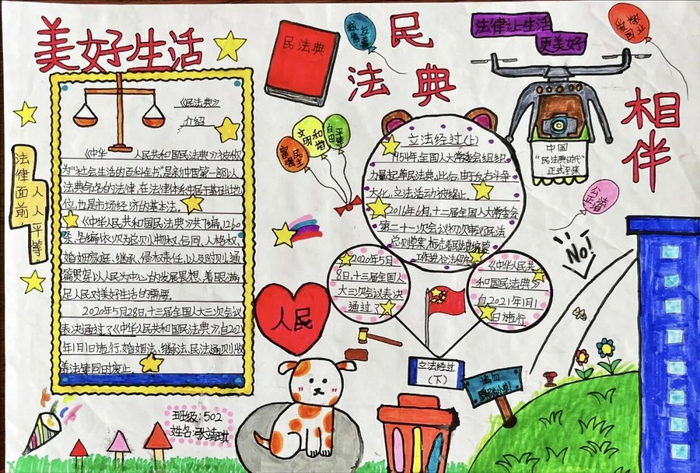 美好生活
民
法典
相伴
民法典
法律让生活
更美好
《民法典》
介绍
《中华人民共和国民法典》被称
为"社会生活的百科全书",是新中国第一部以
法典命名的法律,在法律体系中居于基础性地
位,也是市场经济的基本法。
《中华人民共和国民法典》共7编、1260
条,各编依次为总则、物权、合同、人格权、
婚姻家庭、继承、侵权责任,以及附则。通
篇贯穿以人民为中心的发展思想,着眼满
足人民对美好生活的需要。
2020年5月28日,十三届全国人大三次会议
表决通过了《中华人民共和国民法典》,自202
1年1月1日施行。婚姻法、继承法、民法通则
等法律同时废止。
法律面前
人人平等
富强
民主
文明
和谐
自由
平等
立法经过(上)
1954年,全国人大常委会组织
力量起草民法典,此后,由于
,立法活动被终止。
2016年6月,十二届全国人大常委会
第二十一次会议初次审议民法
2020年5月2
8日,十三届全国人
大三次会议表决
通过了
《中华人民共
和国民法典》
自2021年1月1
日施行
立法经过
(下)
中国
"民法典时代"
正式到来
公正
法治
爱国
敬业
NO!
人民
班级:502
姓名:张靖琪